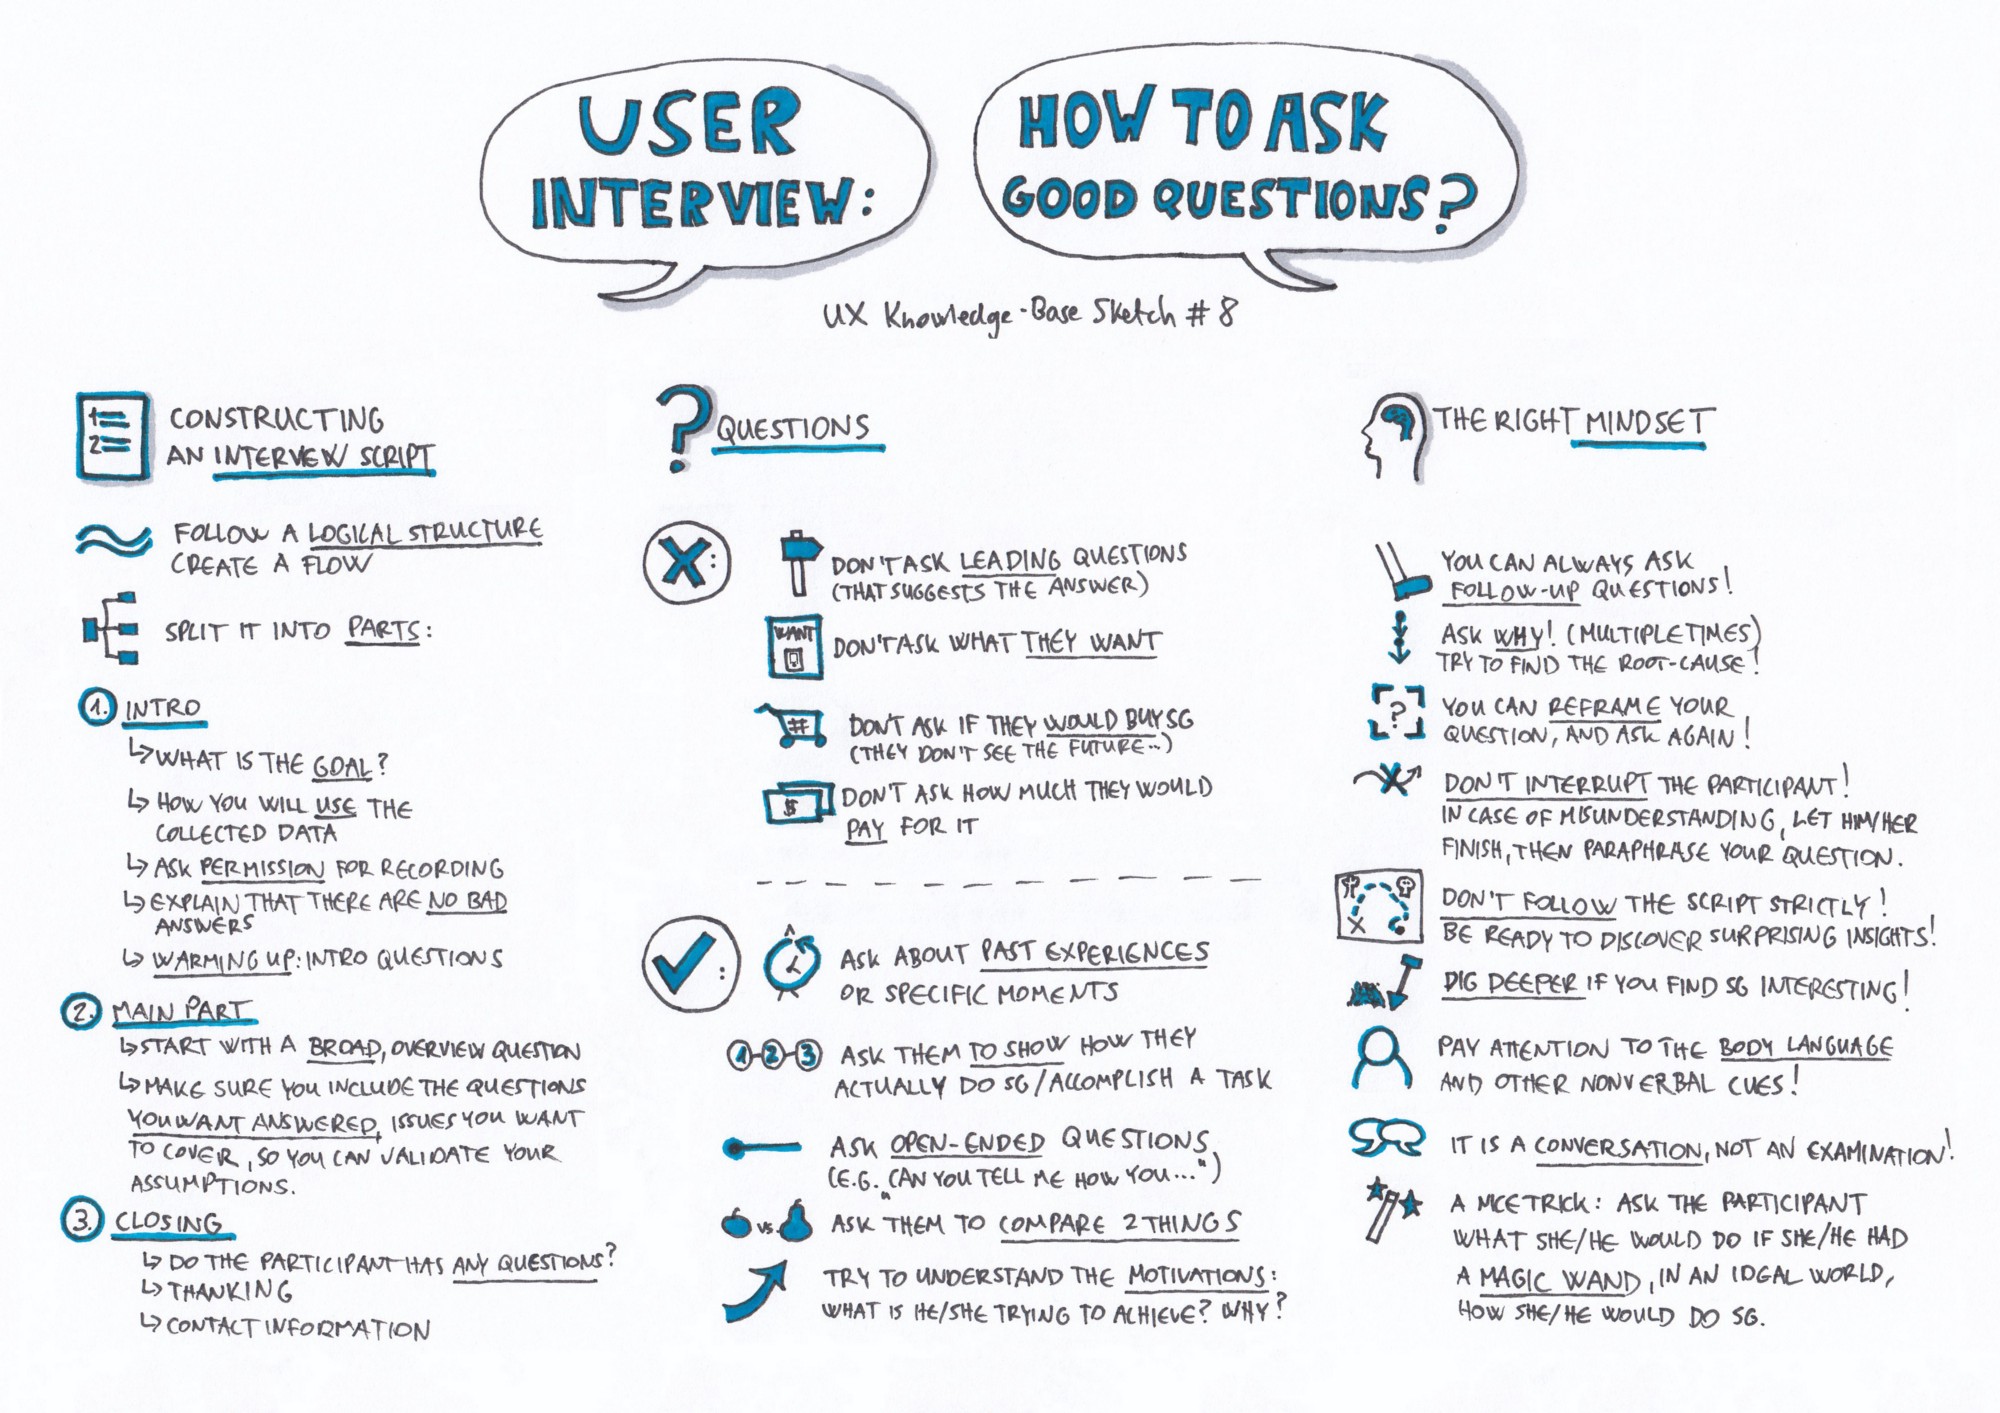 USER
INTERVIEW:
HOW TO ASK
GOOD QUESTIONS?
UX Knowledge-Base Sketch #8
1
2
CONSTRUCTING
AN INTERVIEW SCRIPT
FOLLOW A LOGICAL STRUCTURE
CREATE A FLOW
SPLIT IT INTO PARTS:
1. INTRO
↳ WHAT IS THE GOAL?
↳ HOW YOU WILL USE THE
COLLECTED DATA
↳ ASK PERMISSION FOR RECORDING
↳ EXPLAIN THAT THERE ARE NO BAD
ANSWERS
↳ WARMING UP: INTRO QUESTIONS
2. MAIN PART
↳ START WITH A BROAD, OVERVIEW QUESTION
↳ MAKE SURE YOU INCLUDE THE QUESTIONS
YOU WANT ANSWERED, ISSUES YOU WANT
TO COVER, SO YOU CAN VALIDATE YOUR
ASSUMPTIONS.
3. CLOSING
↳ DO THE PARTICIPANT HAS ANY QUESTIONS?
↳ THANKING
↳ CONTACT INFORMATION
? QUESTIONS
X:
DON'T ASK LEADING QUESTIONS
(THAT SUGGESTS THE ANSWER)
WANT
DON'T ASK WHAT THEY WANT
#
DON'T ASK IF THEY WOULD BUY SG
(THEY DON'T SEE THE FUTURE...)
$
DON'T ASK HOW MUCH THEY WOULD
PAY FOR IT
✓:
ASK ABOUT PAST EXPERIENCES
OR SPECIFIC MOMENTS
1-2-3
ASK THEM TO SHOW HOW THEY
ACTUALLY DO SG/ACCOMPLISH A TASK
ASK OPEN-ENDED QUESTIONS
(E.G. "CAN YOU TELL ME HOW YOU...")
VS.
ASK THEM TO COMPARE 2 THINGS
TRY TO UNDERSTAND THE MOTIVATIONS:
WHAT IS HE/SHE TRYING TO ACHIEVE? WHY?
THE RIGHT MINDSET
YOU CAN ALWAYS ASK
FOLLOW-UP QUESTIONS!
ASK WHY! (MULTIPLE TIMES)
TRY TO FIND THE ROOT-CAUSE!
?
YOU CAN REFRAME YOUR
QUESTION, AND ASK AGAIN!
DON'T INTERRUPT THE PARTICIPANT!
IN CASE OF MISUNDERSTANDING, LET HIM/HER
FINISH, THEN PARAPHRASE YOUR QUESTION.
X
DON'T FOLLOW THE SCRIPT STRICTLY!
BE READY TO DISCOVER SURPRISING INSIGHTS!
DIG DEEPER IF YOU FIND SG INTERESTING!
PAY ATTENTION TO THE BODY LANGUAGE
AND OTHER NONVERBAL CUES!
IT IS A CONVERSATION, NOT AN EXAMINATION!
A NICE TRICK: ASK THE PARTICIPANT
WHAT SHE/HE WOULD DO IF SHE/HE HAD
A MAGIC WAND, IN AN IDEAL WORLD,
HOW SHE/HE WOULD DO SG.